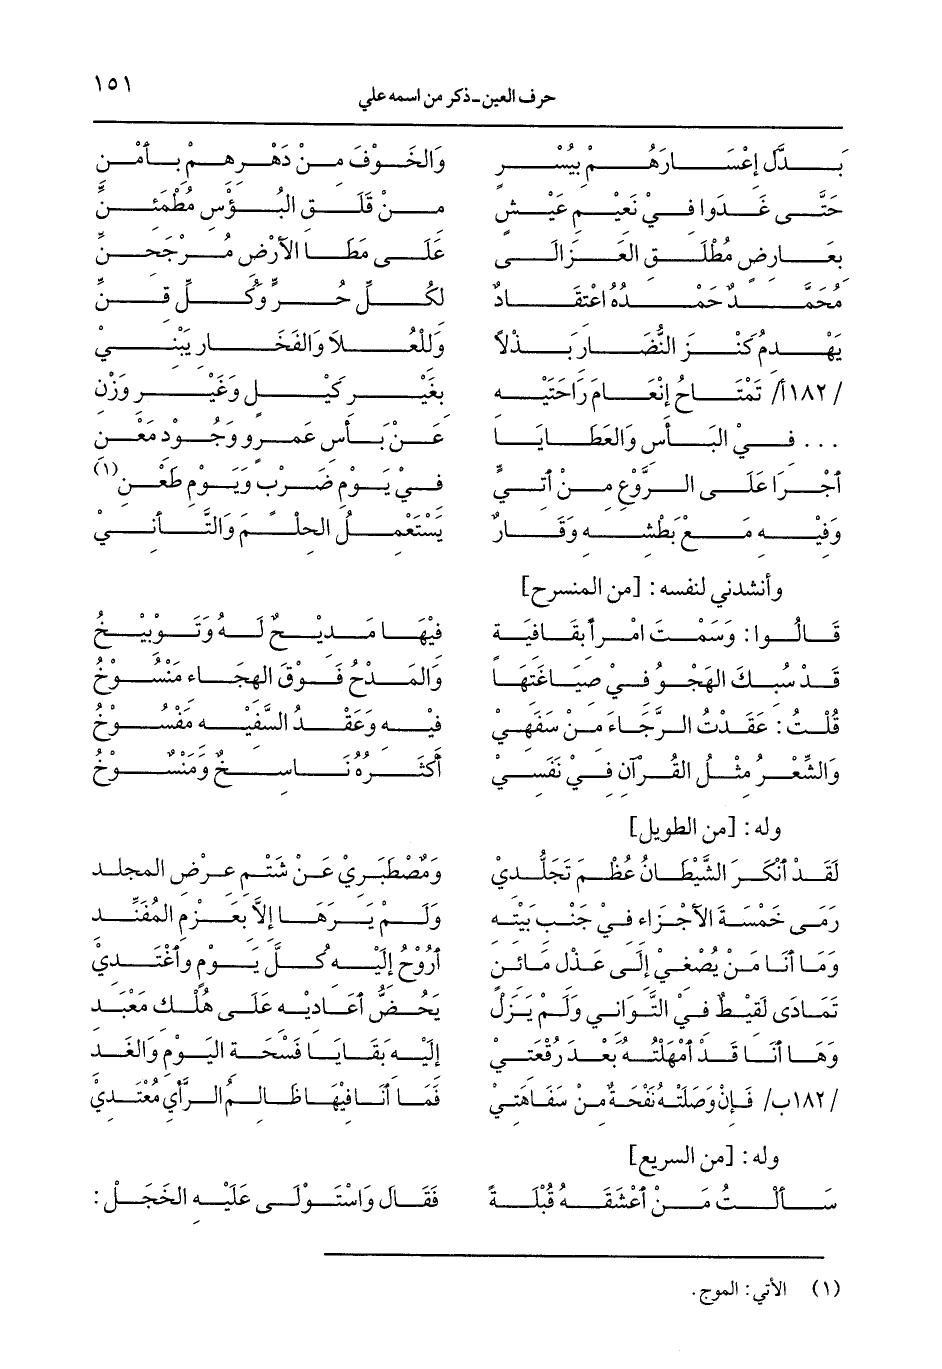 حرف العين ـ ذكر من اسمه علي ١٥١
بَدَّلَ إِعْسَارَهُمْ بِيُسْرٍ وَالخَوْفَ مِنْ دَهْرِهِمْ بِأَمْنِ
حَتَّى غَدَوا فِيْ نَعِيْمِ عَيْشٍ مِنْ قَلَقِ البُؤْسِ مُطْمَئِنِّ
بِعَارِضٍ مُطْلَقِ العَزَالَى عَلَى مَطَا الأَرْضِ مُرْجَحِنِّ
مُحَمَّدٌ حَمْدُهُ اعْتِقَادٌ لِكُلِّ حُرٍّ وَكُلِّ قِنِّ
يَهْدِمُ كَنْزَ النُّضَارِ بَذْلاً وَلِلْعُلاَ وَالفَخَارِ يَبْنِيْ
/١٨٢أ/ تَمْتَاحُ إِنْعَامَ رَاحَتَيْهِ بِغَيْرِ كَيْلٍ وَغَيْرِ وَزْنِ
... فِيْ البَأْسِ وَالعَطَايَا عَنْ بَأْسِ عَمْرٍو وَجُوْدِ مَعْنِ
أَجْرَا عَلَى الرَّوْعِ مِنْ أَتِيٍّ فِيْ يَوْمِ ضَرْبٍ وَيَوْمِ طَعْنِ(١)
وَفِيْهِ مَعْ بَطْشِهِ وَقَارٌ يَسْتَعْمِلُ الحِلْمَ وَالتَّأَنِيْ
وأنشدني لنفسه: [من المنسرح]
قَالُوا: وَسَمْتَ امْرأً بِقَافِيَةٍ فِيْهَا مَدِيْحٌ لَهُ وَتَوْبِيْخُ
قَدْ سُبِكَ الهَجْوُ فِي صِيَاغَتِهَا وَالمَدْحُ فَوْقَ الهِجَاءِ مَنْسُوْخُ
قُلْتُ: عَقَدْتُ الرَّجَاءَ مِنْ سَفَهِيْ فِيْهِ وَعَقْدُ السَّفِيْهِ مَفْسُوْخُ
وَالشِّعْرُ مِثْلُ القُرآنِ فِيْ نَفَسِيْ أَكْثَرُهُ نَاسِخٌ وَمَنْسُوْخُ
وله: [من الطويل]
لَقَدْ أَنْكَرَ الشَّيْطَانُ عُظْمَ تَجَلُّدِيْ وَمُصْطَبَرِيْ عَنْ شَتْمِ عِرْضِ المجلد
رَمَى خَمْسَةَ الأَجْزَاءِ فِيْ جَنْبِ بَيْتِهِ وَلَمْ يَرَهَا إِلاَّ بَعَزْمِ المُفَنَّدِ
وَمَا أَنَا مَنْ يُصْغِي إِلَى عَذْلِ مَائِنٍ أَرُوْحُ إِلَيْهِ كُلَّ يَوْمٍ وأَغْتَدِيْ
تَمَادَى لَقِيْطٌ فِيْ التَّوَانِي وَلَمْ يَزَلْ يَحُضُّ أَعَادِيْهِ عَلَى هُلْكِ مَعْبَدِ
وَهَا أَنَا قَدْ أَمْهَلْتُهُ بَعْدَ رُقْعَتِيْ إِلَيْهِ بَقَايَا فُسْحَةِ اليَوْمِ وَالغَدِ
/١٨٢ب/ فَإِنْ وَصَلَتْهُ نَفْحَةٌ مِنْ سَفَاهَتِيْ فَمَا أَنَا فِيْهَا ظَالِمُ الرَّأْيِ مُعْتَدِيْ
وله: [من السريع]
سَأَلْتُ مَنْ أَعْشَقَهُ قُبْلَةً فَقَالَ وَاسْتَوْلَى عَلَيْهِ الخَجَلْ:
(١) الأتي: الموج.